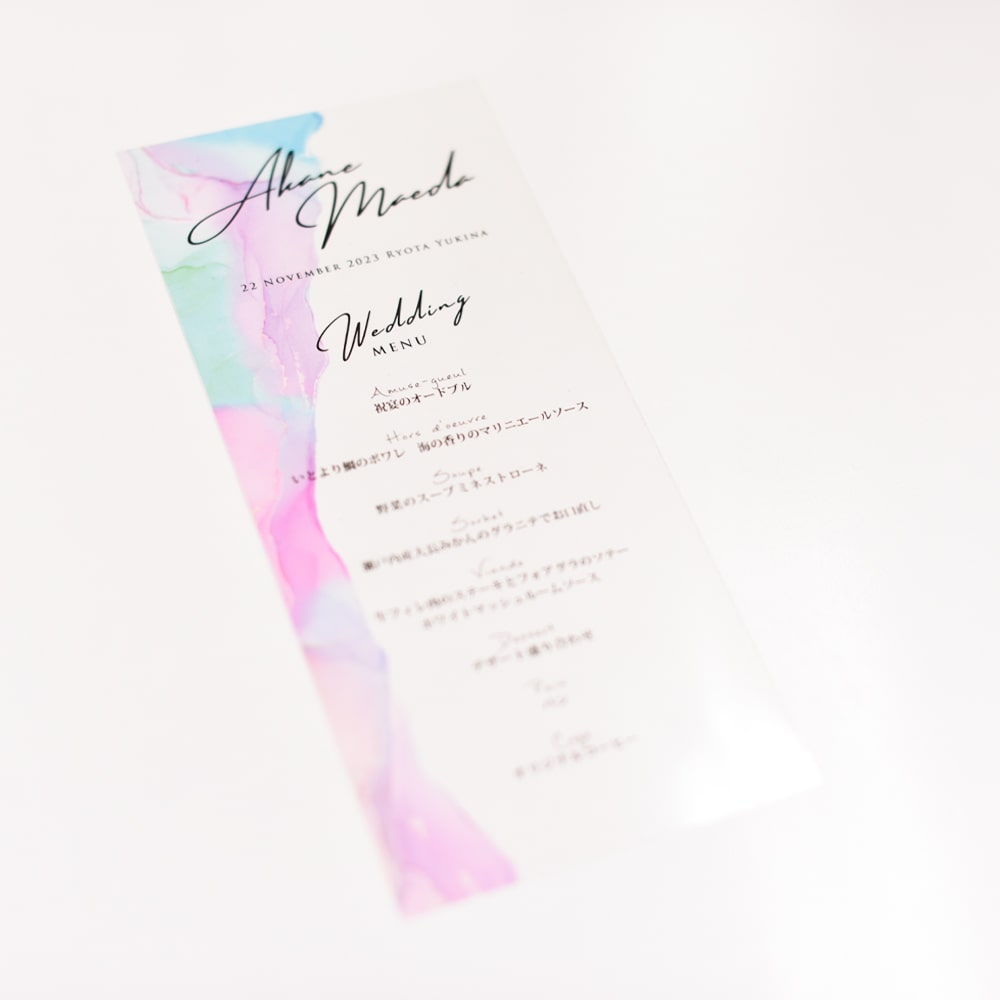 Akane
Maeda
22 November 2023 Ryota Yukina
Wedding
MENU
Amuse-gueul
祝宴のオードブル
Hors d'oeuvre
いとより鯛のポワレ　海の香りのマリニエールソース
Soupe
野菜のスープミネストローネ
Sorbet
瀬戸内産大長みかんのグラニテでお口直し
Viande
牛フィレ肉のステーキとフォアグラのソテー
ホワイトマッシュルームソース
Dessert
デザート盛り合わせ